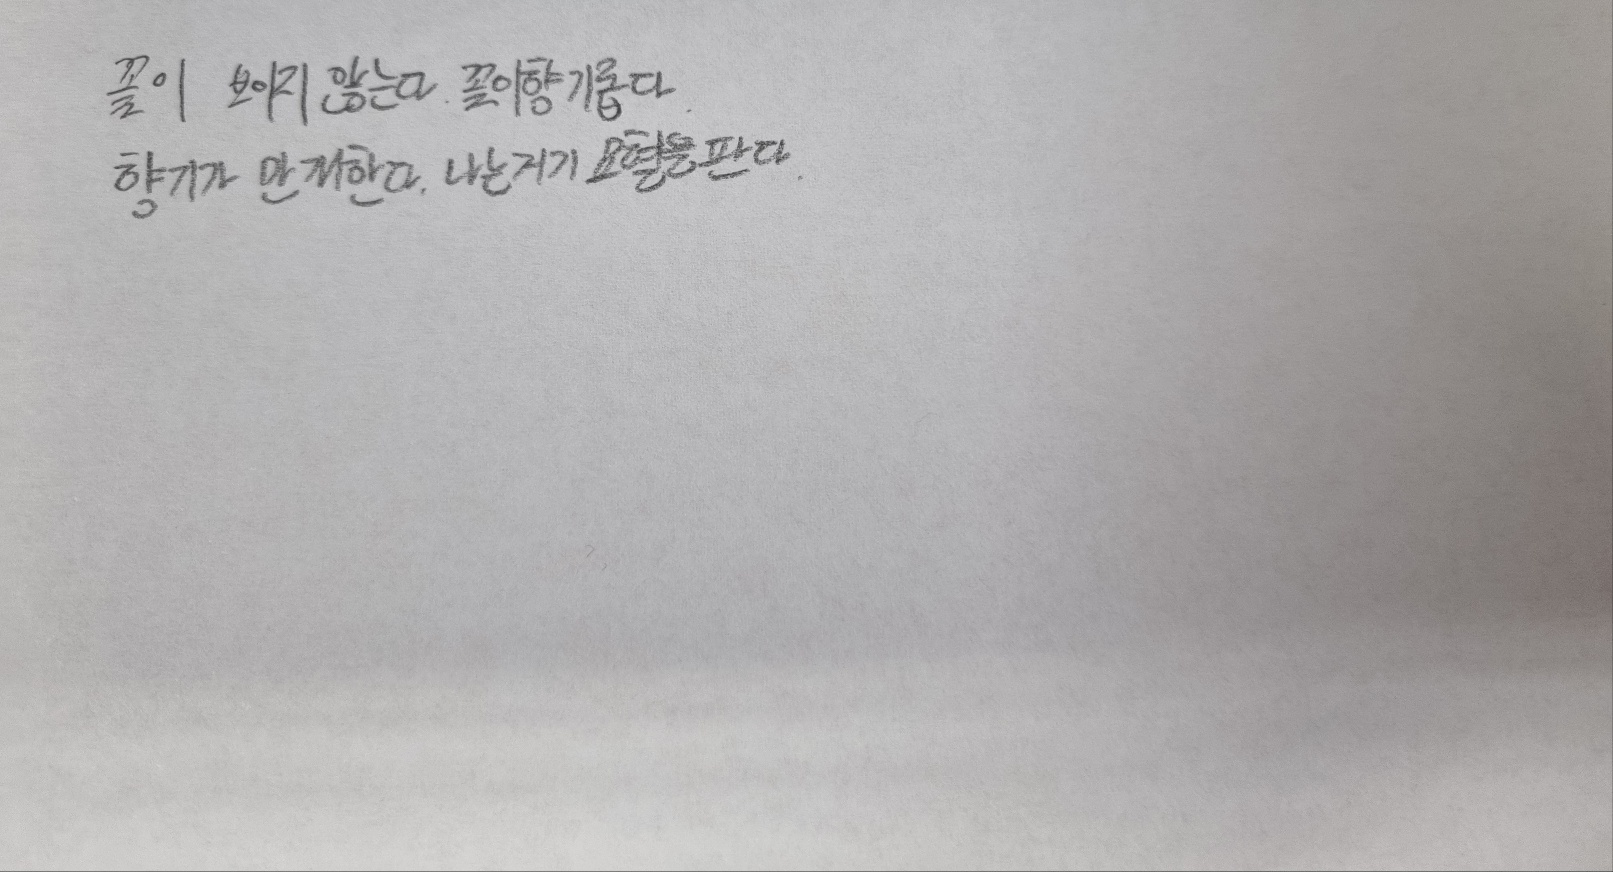 꽃이 보이지 않는다. 꽃이향기롭다.
향기가 만개한다. 나는거기 묘혈을판다.